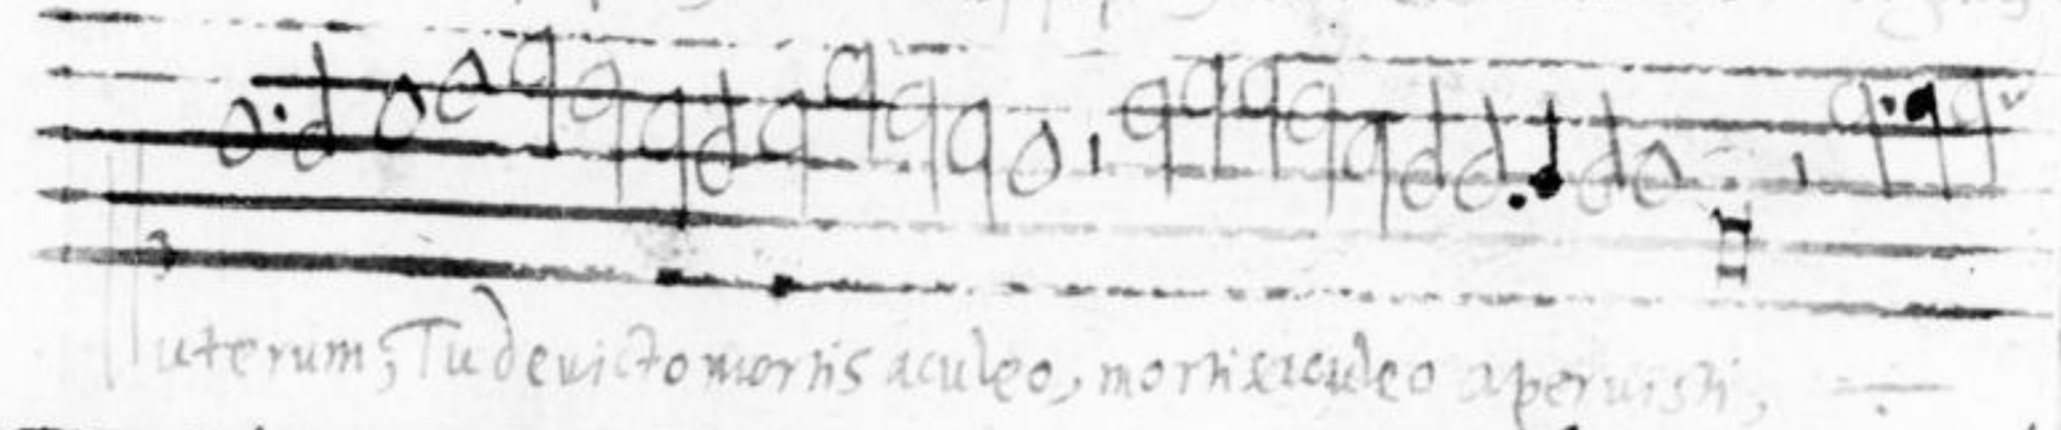 uterum, Tu devicto mortis aculeo, mortis aculeo aperuisti,